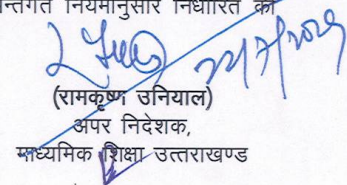 न्तर्गत नियमानुसार निर्धारित की
(रामकृष्ण उनियाल)
अपर निदेशक,
माध्यमिक शिक्षा उत्तराखण्ड